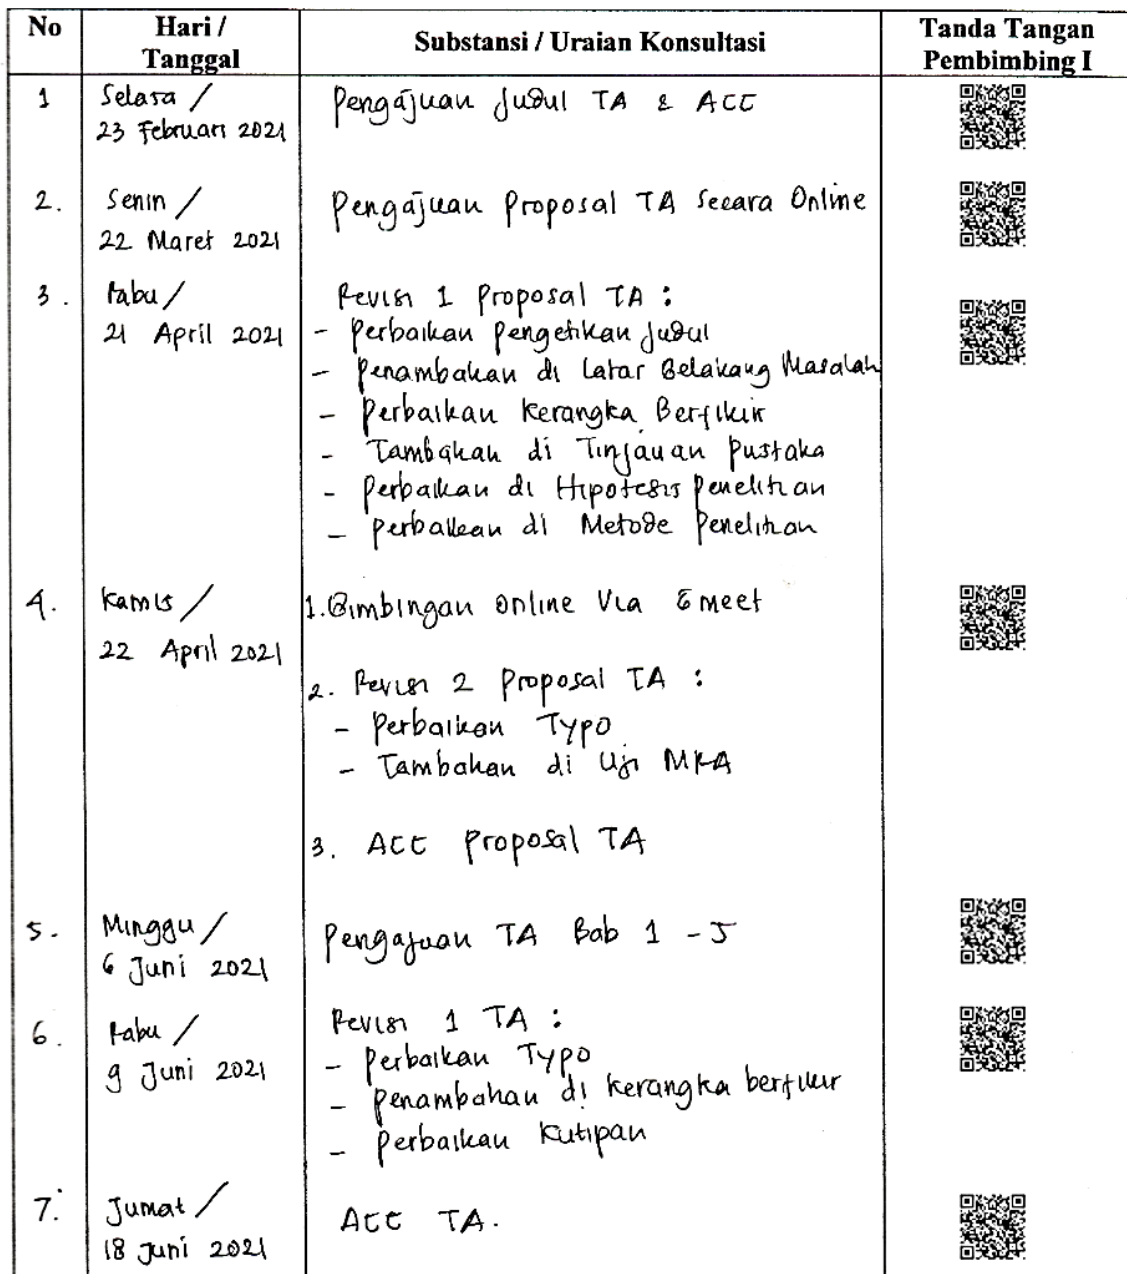 No Hari / Tanggal Substansi / Uraian Konsultasi Tanda Tangan Pembimbing I
1 Selasa / Pengajuan Judul TA & ACC
23 Februari 2021
2. Senin / Pengajuan Proposal TA Secara Online
22 Maret 2021
3. Rabu / Revisi 1 Proposal TA :
21 April 2021 - Perbaikan Pengetikan Judul
- Penambahan di Latar Belakang Masalah
- Perbaikan Kerangka Berfikir
- Tambahan di Tinjauan Pustaka
- Perbaikan di Hipotesis Penelitian
- Perbaikan di Metode Penelitian
4. Kamis / 1. Bimbingan Online Via Gmeet
22 April 2021
2. Revisi 2 Proposal TA :
- Perbaikan Typo
- Tambahan di Uji MRA
3. ACC Proposal TA
5. Minggu / Pengajuan TA Bab 1 - 5
6 Juni 2021
6. Rabu / Revisi 1 TA :
9 Juni 2021 - Perbaikan Typo
- Penambahan di kerangka berfikir
- Perbaikan Kutipan
7. Jumat / ACC TA.
18 Juni 2021